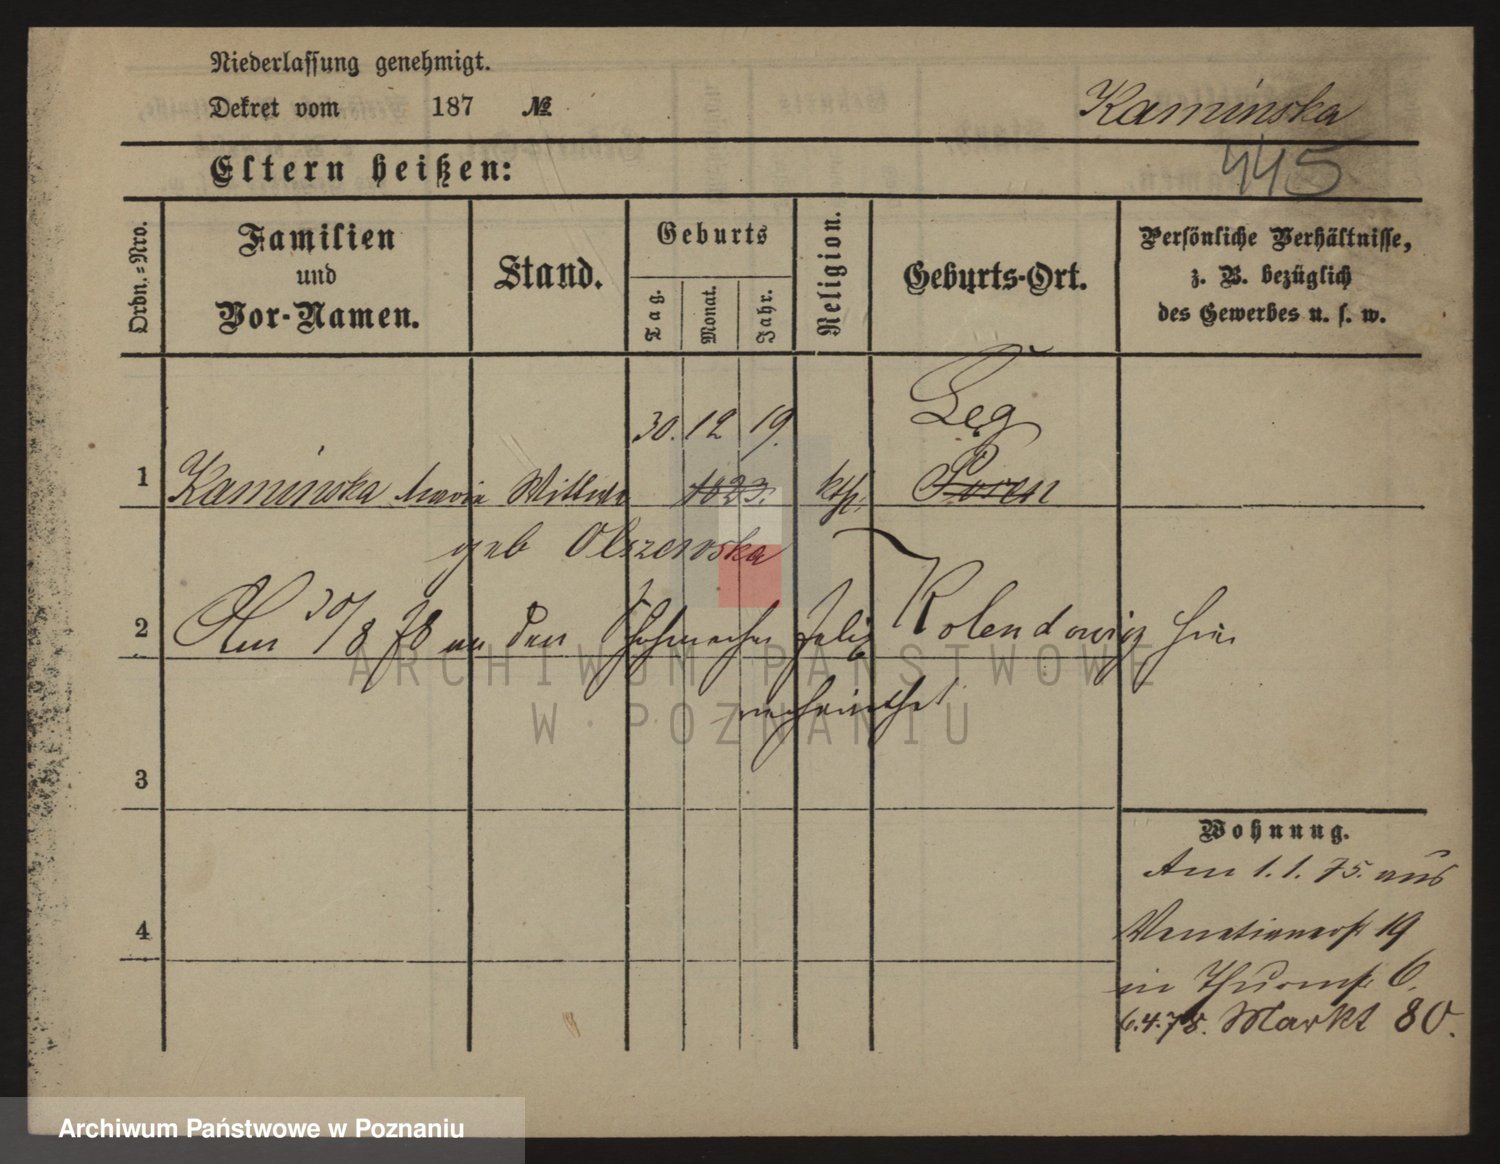 Niederlassung genehmigt.
Dekret vom 187 №
Kaminska
445
Eltern heißen:
Ordn.=Nro.
Familien
und
Vor-Namen.
Stand.
Geburts
Tag.
Monat.
Jahr.
Religion.
Geburts-Ort.
Persönliche Verhältnisse,
z. B. bezüglich
des Gewerbes u. s. w.
30. 12 19.
Leg
1 Kaminska Maria Wittwe 1823. kth. Posen
geb Olszewska
2 Am 30/8 78 an den Felix Kolendowicz hier
verheirathet
ARCHIWUM PAŃSTWOWE
W POZNANIU
3
4
Wohnung.
Am 1.1.75. aus
Venetianerstr 19
in Thurmstr 6.
6.4.78. Markt 80.
Archiwum Państwowe w Poznaniu